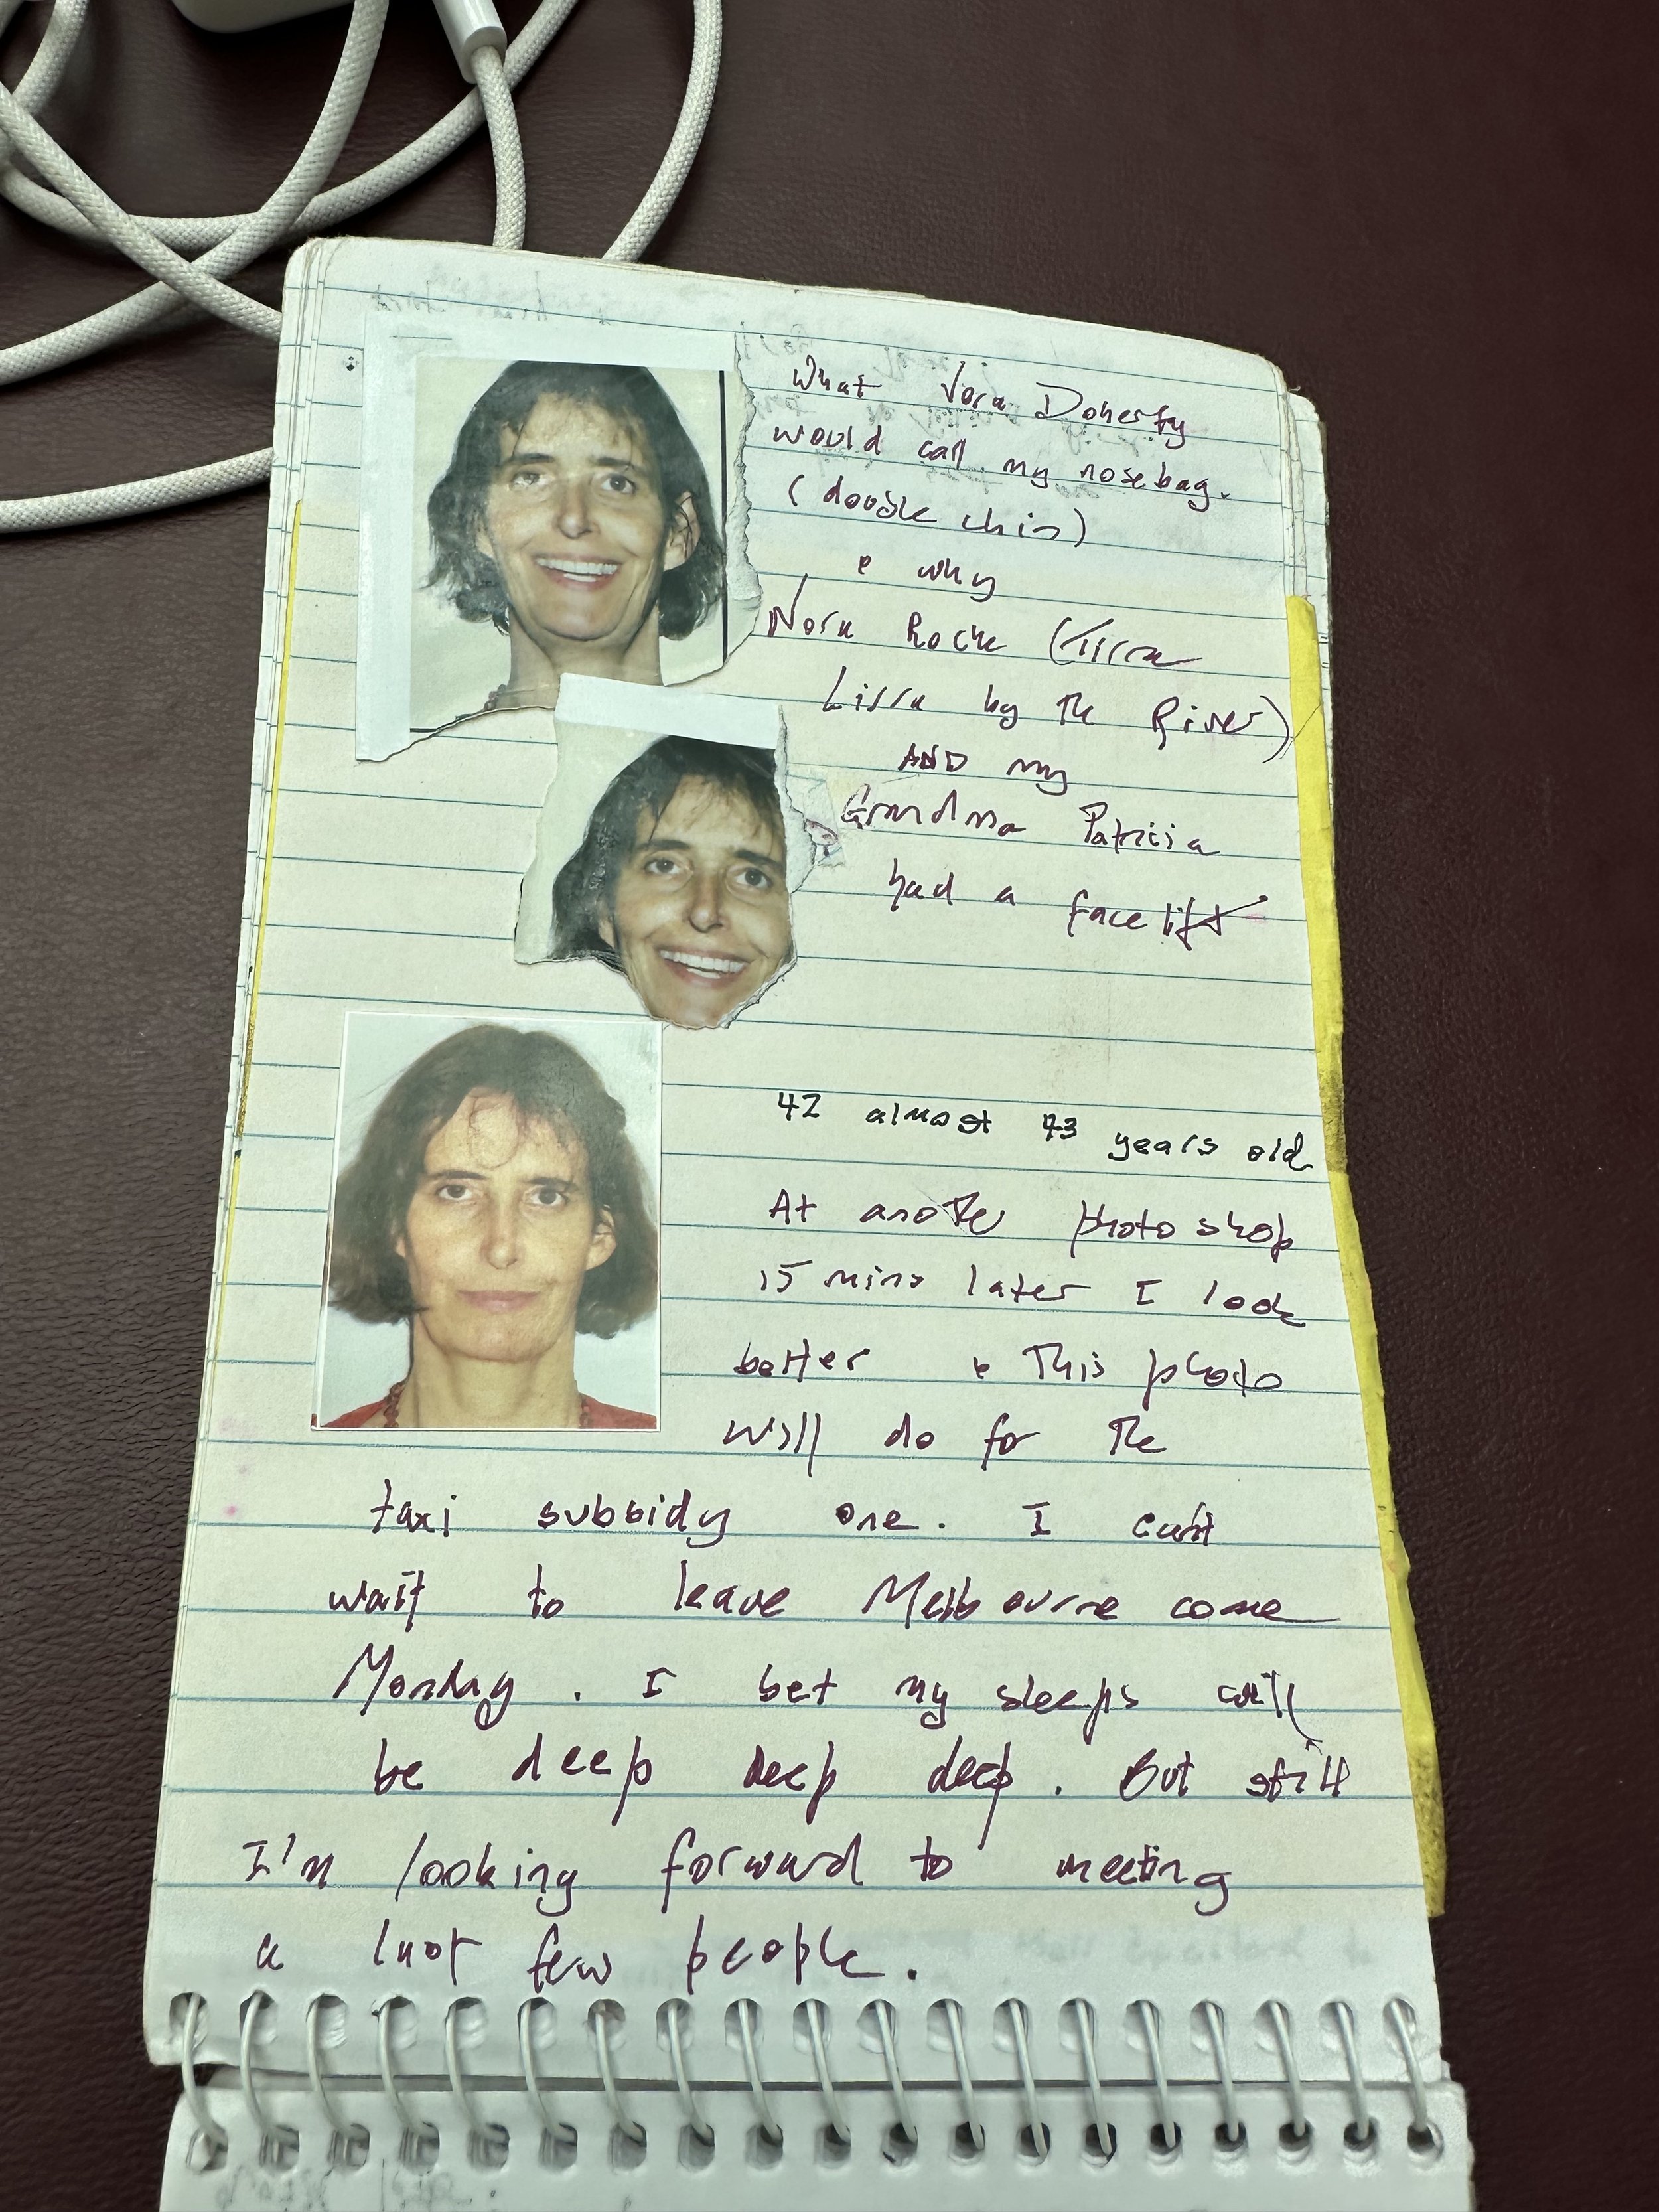 What Vera Doherty
would call my nosebag.
(double chin)
& why
Nora Roche (Tirra
Lirra by the River)
AND my
Grandma Patricia
had a facelift
42 almost 43 years old
At another photo shop
15 mins later I look
better & This photo
will do for the
taxi subsidy one. I can't
wait to leave Melbourne come
Monday. I bet my sleeps will
be deep deep deep. But still
I'm looking forward to meeting
a few people.